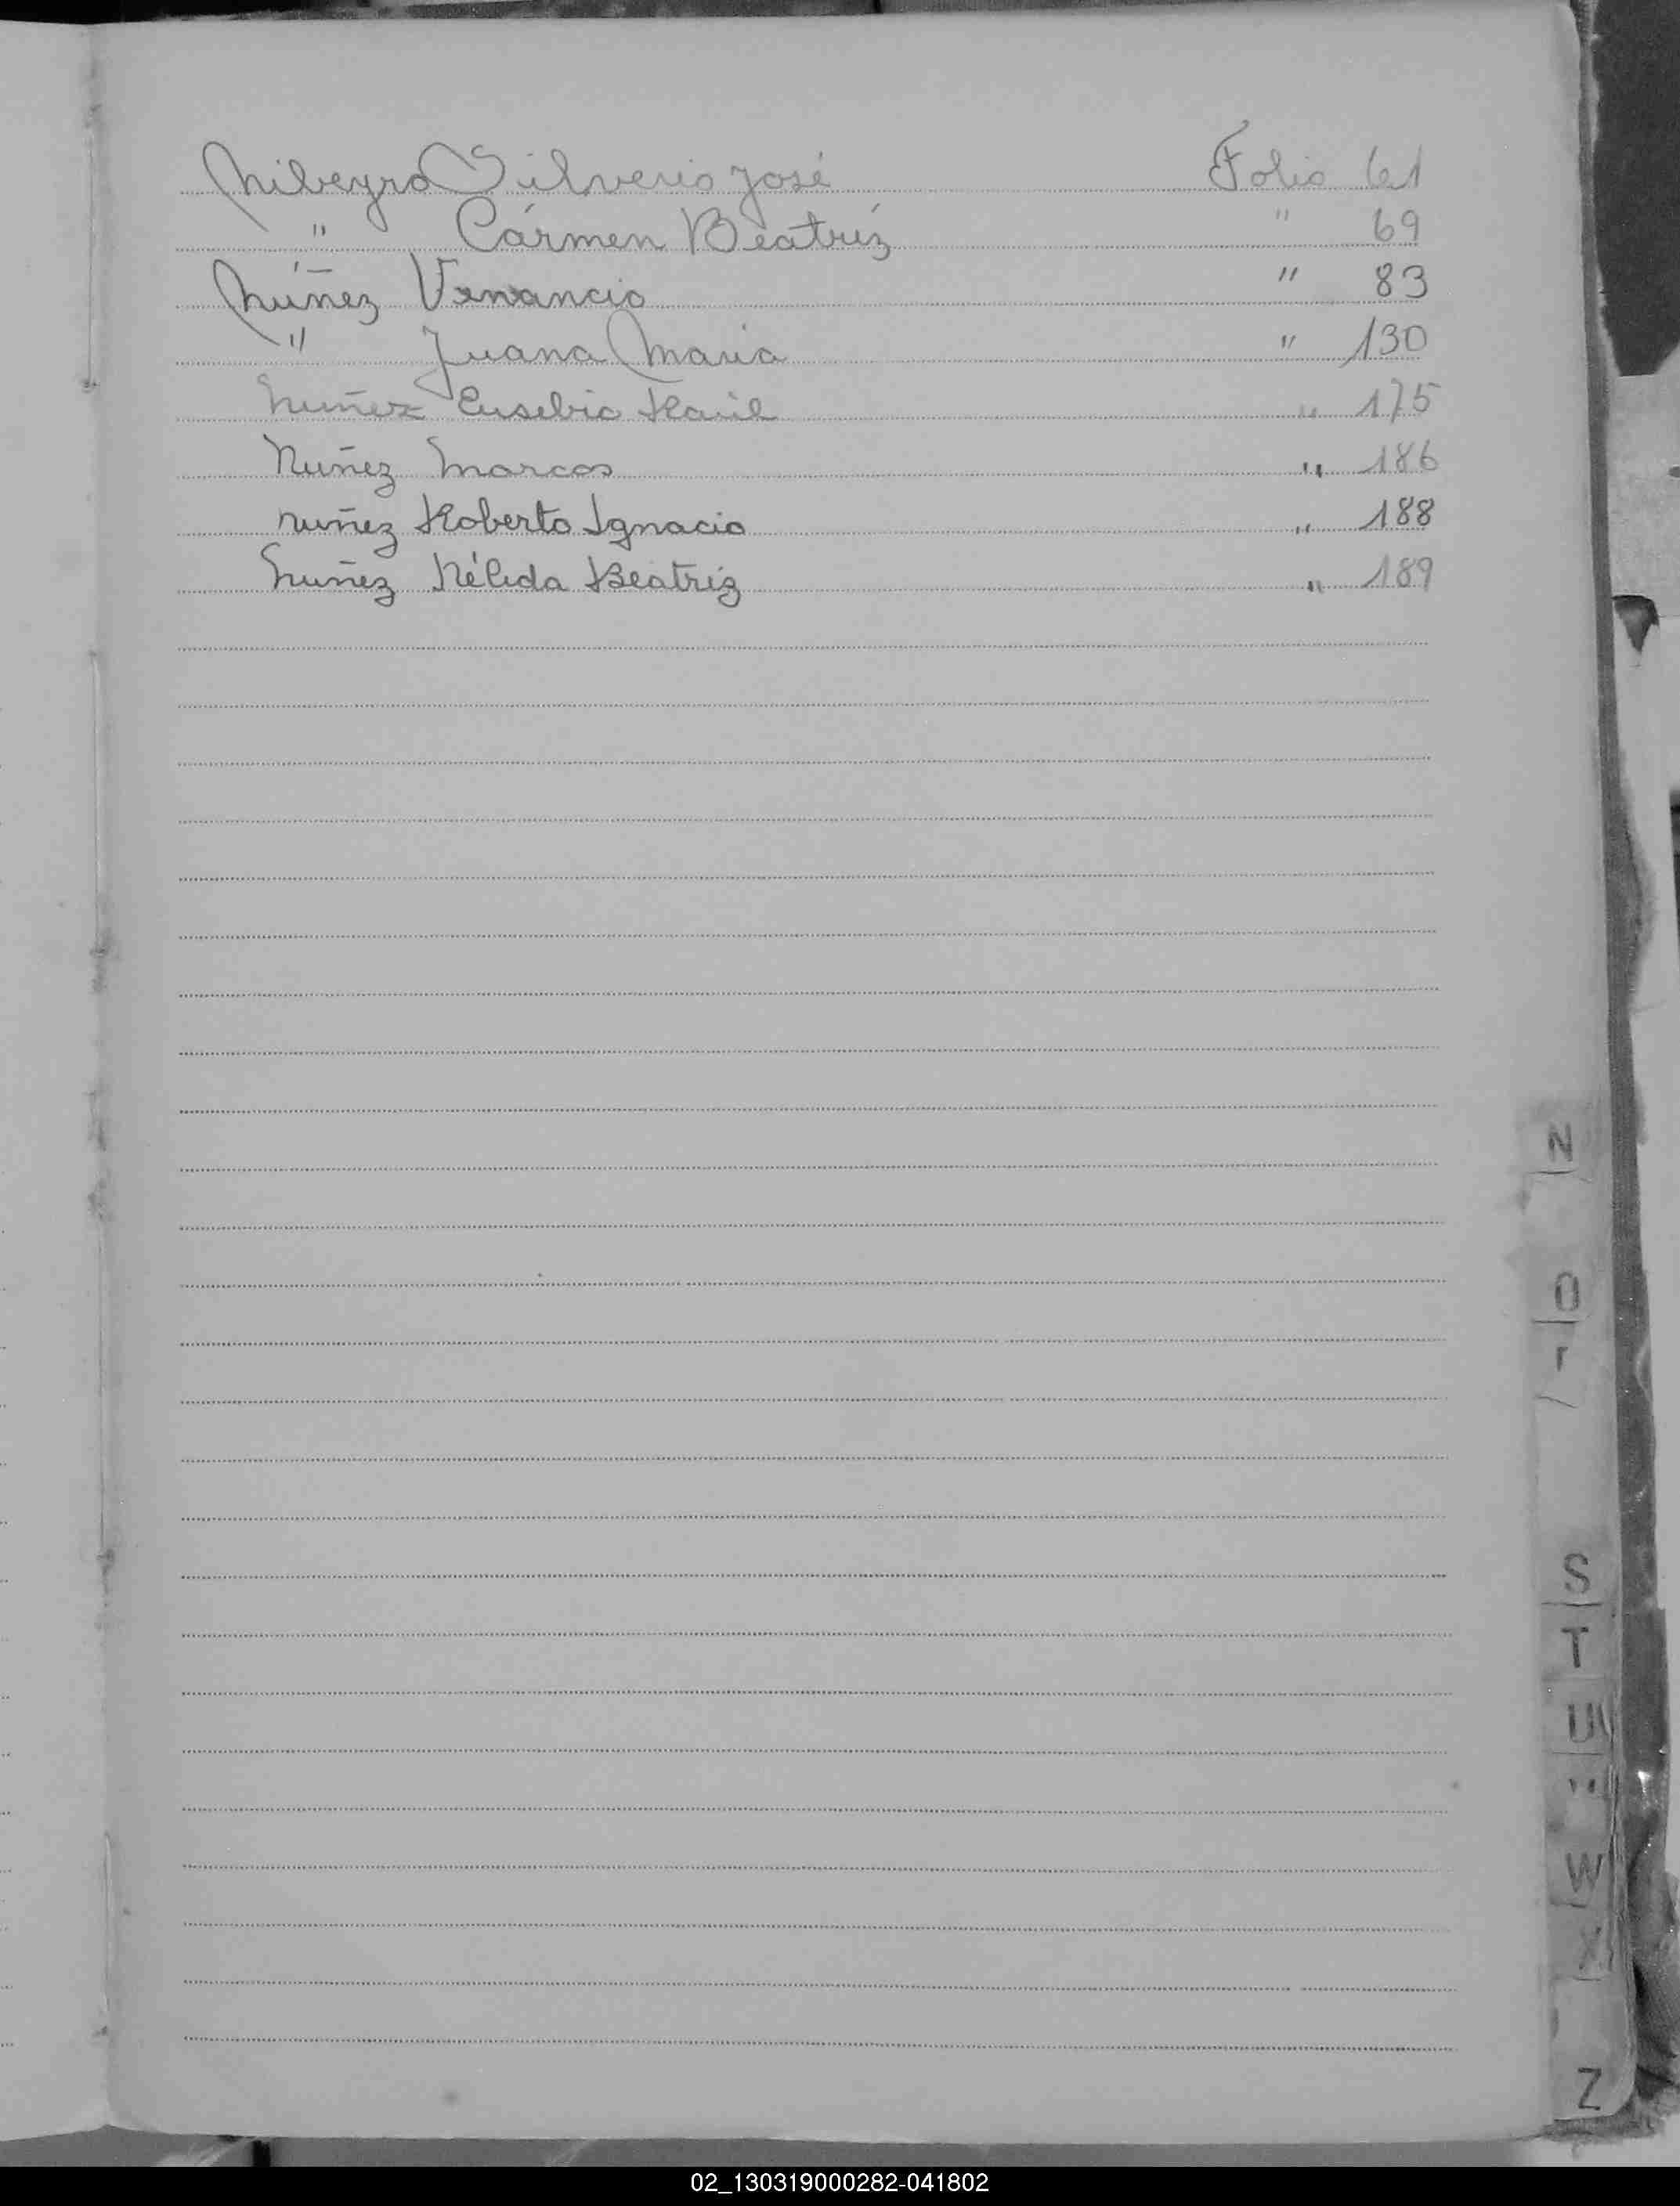 Nibeyro Silverio José Folio 61
" Cármen Beatríz " 69
Núñez Venancio " 83
" Juana Maria " 130
Nuñez Eusebio Raúl " 175
Nuñez Marcos " 186
Nuñez Roberto Ignacio " 188
Nuñez Nélida Beatriz " 189
N
O
S
T
U
W
X
Z
02_130319000282-041802